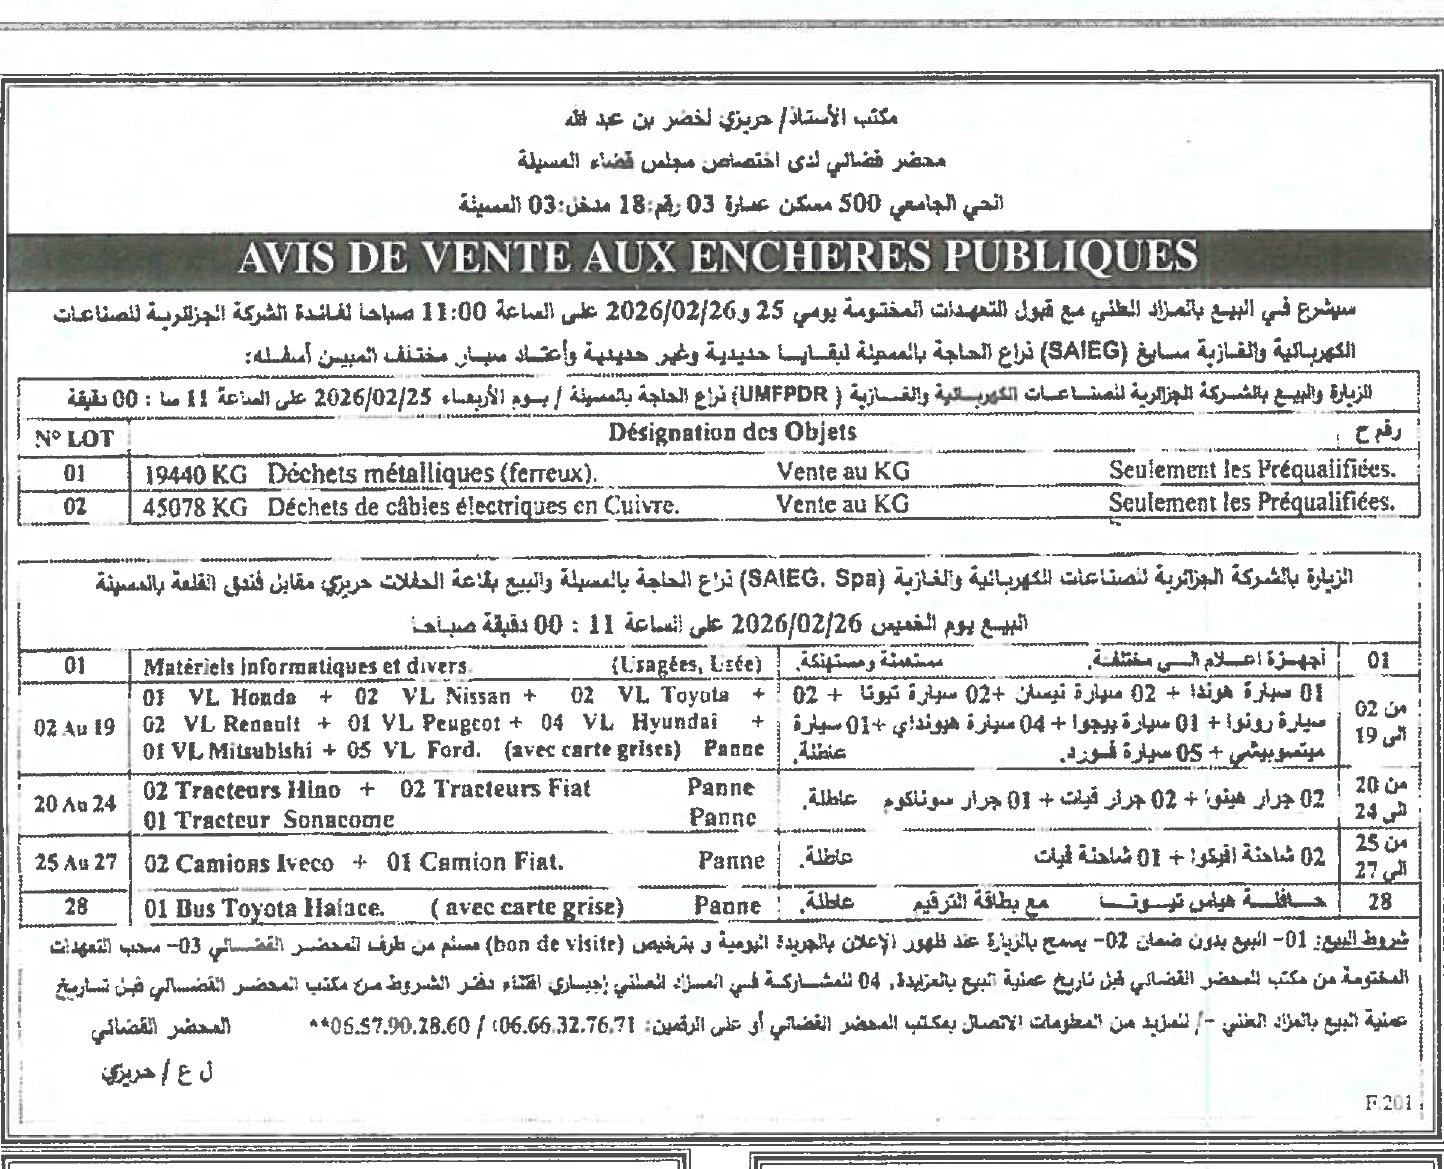 مكتب الأستاذ/ حريزي لخضر بن عبد الله
محضر قضائي لدى اختصاص مجلس قضاء المسيلة
الحي الجامعي 500 مسكن عمارة 03 رقم:18 مدخل:03 المسيلة
AVIS DE VENTE AUX ENCHERES PUBLIQUES
سيشرع في البيع بالمزاد العلني مع قبول التعهدات المختومة يومي 25 و2026/02/26 على الساعة 11:00 صباحا لفائدة الشركة الجزائرية للصناعات
الكهربائية والغازية سايغ (SAIEG) ذراع الحاجة بالمسيلة لبقايا حديدية وغير حديدية وأعتاد سيار مختلف المبين أسفله:
الزيارة والبيع بالشركة الجزائرية للصناعات الكهربائية والغازية (UMFPDR) ذراع الحاجة بالمسيلة / يوم الأربعاء 2026/02/25 على الساعة 11 سا : 00 دقيقة
N° LOT Désignation des Objets رقم ح
01 19440 KG Déchets métalliques (ferreux). Vente au KG Seulement les Préqualifiées.
02 45078 KG Déchets de câbles électriques en Cuivre. Vente au KG Seulement les Préqualifiées.
الزيارة بالشركة الجزائرية للصناعات الكهربائية والغازية (SAIEG. Spa) ذراع الحاجة بالمسيلة والبيع بقاعة الحفلات حريزي مقابل فندق القلعة بالمسيلة
البيع يوم الخميس 2026/02/26 على الساعة 11 : 00 دقيقة صباحا
01 Matériels informatiques et divers. (Usagées, Usée) أجهزة اعلام الي مختلفة. مستعملة ومستهلكة. 01
02 Au 19 01 VL Honda + 02 VL Nissan + 02 VL Toyota + 01 سيارة هوندا + 02 سيارة نيسان +02 سيارة تيوتا + 02 من 02
02 VL Renault + 01 VL Peugeot + 04 VL Hyundai + سيارة رونوا + 01 سيارة بيجوا + 04 سيارة هيونداي +01 سيارة الى 19
01 VL Mitsubishi + 05 VL Ford. (avec carte grises) Panne ميتسوبيشي + 05 سيارة فورد. عاطلة.
20 Au 24 02 Tracteurs Hino + 02 Tracteurs Fiat Panne 02 جرار هينوا + 02 جرار فيات + 01 جرار سوناكوم عاطلة. من 20
01 Tracteur Sonacome Panne الى 24
25 Au 27 02 Camions Iveco + 01 Camion Fiat. Panne 02 شاحنة افيكوا + 01 شاحنة فيات عاطلة. من 25 الى 27
28 01 Bus Toyota Haiace. ( avec carte grise) Panne حافلة هياس تيوتا مع بطاقة الترقيم عاطلة. 28
شروط البيع: 01- البيع بدون ضمان 02- يسمح بالزيارة عند ظهور الإعلان بالجريدة اليومية و بترخيص (bon de visite) مسلم من طرف المحضر القضائي 03- سحب التعهدات
المختومة من مكتب المحضر القضائي قبل تاريخ عملية البيع بالمزايدة. 04 للمشاركة في المزاد العلني إجباري اقتناء دفتر الشروط من مكتب المحضر القضائي قبل تاريخ
عملية البيع بالمزاد العلني -/ للمزيد من المعلومات الاتصال بمكتب المحضر القضائي أو على الرقمين: 06.66.32.76.71 / 06.57.90.28.60** المحضر القضائي
ل ع / حريزي
F.201